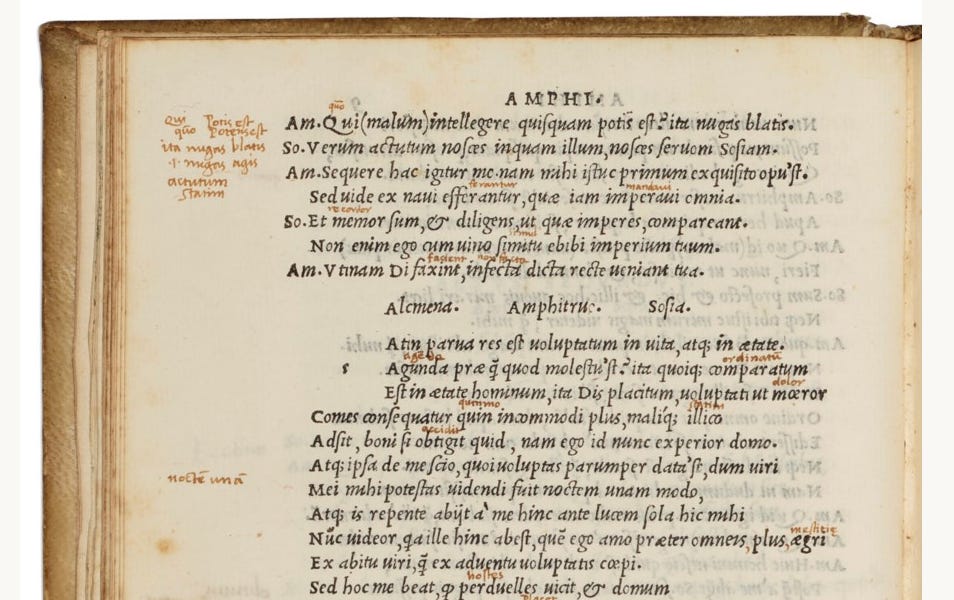 AMPHI.
quo
Am. Qui (malum) intellegere quisquam potis est? ita nugas blatis.
So. Verum actutum nosces inquam illum, nosces seruom Sosiam.
Am. Sequere hac igitur me. nam mihi istuc primum exquisito opu'st.
ferantur mandaui
Sed uide ex naui efferantur, quæ iam imperaui omnia.
recordor
So. Et memor sum, & diligens, ut quæ imperes, compareant.
simul
Non enim ego cum uino simitu ebibi imperium tuum.
faxient non facta
Am. Vtinam Di faxint, infecta dicta recte ueniant tua.
Qui Potis est
quo Potens est
ita nugas blatis
.i. nugas agis
actutum
statim
Alcmena. Amphitruo. Sosia.
Atin parua res est uoluptatum in uita, atq; in ætate.
agenda ordinatū
s Agunda præ q̃ quod molestu'st? ita quoiq; comparatum
dolor
Est in ætate hominum, ita Dis placitum, uoluptati ut mœror
quinimo statim
Comes consequatur quin incommodi plus, maliq; illico
accidit
Adsit, boni si obtigit quid, nam ego id nunc experior domo.
Atq; ipsa de me scio, quoi uoluptas parumper data'st, dum uiri
noctē unā
Mei mihi potestas uidendi fuit noctem unam modo,
Atq; is repente abijt a' me hinc ante lucem sola hic mihi
mestitiæ
Nūc uideor, q̃a ille hinc abest, quē ego amo præter omneis, plus, ægri
Ex abitu uiri, q̃ ex aduentu uoluptatis cœpi.
hostes
Sed hoc me beat, ꝙ perduelles uicit, & domum